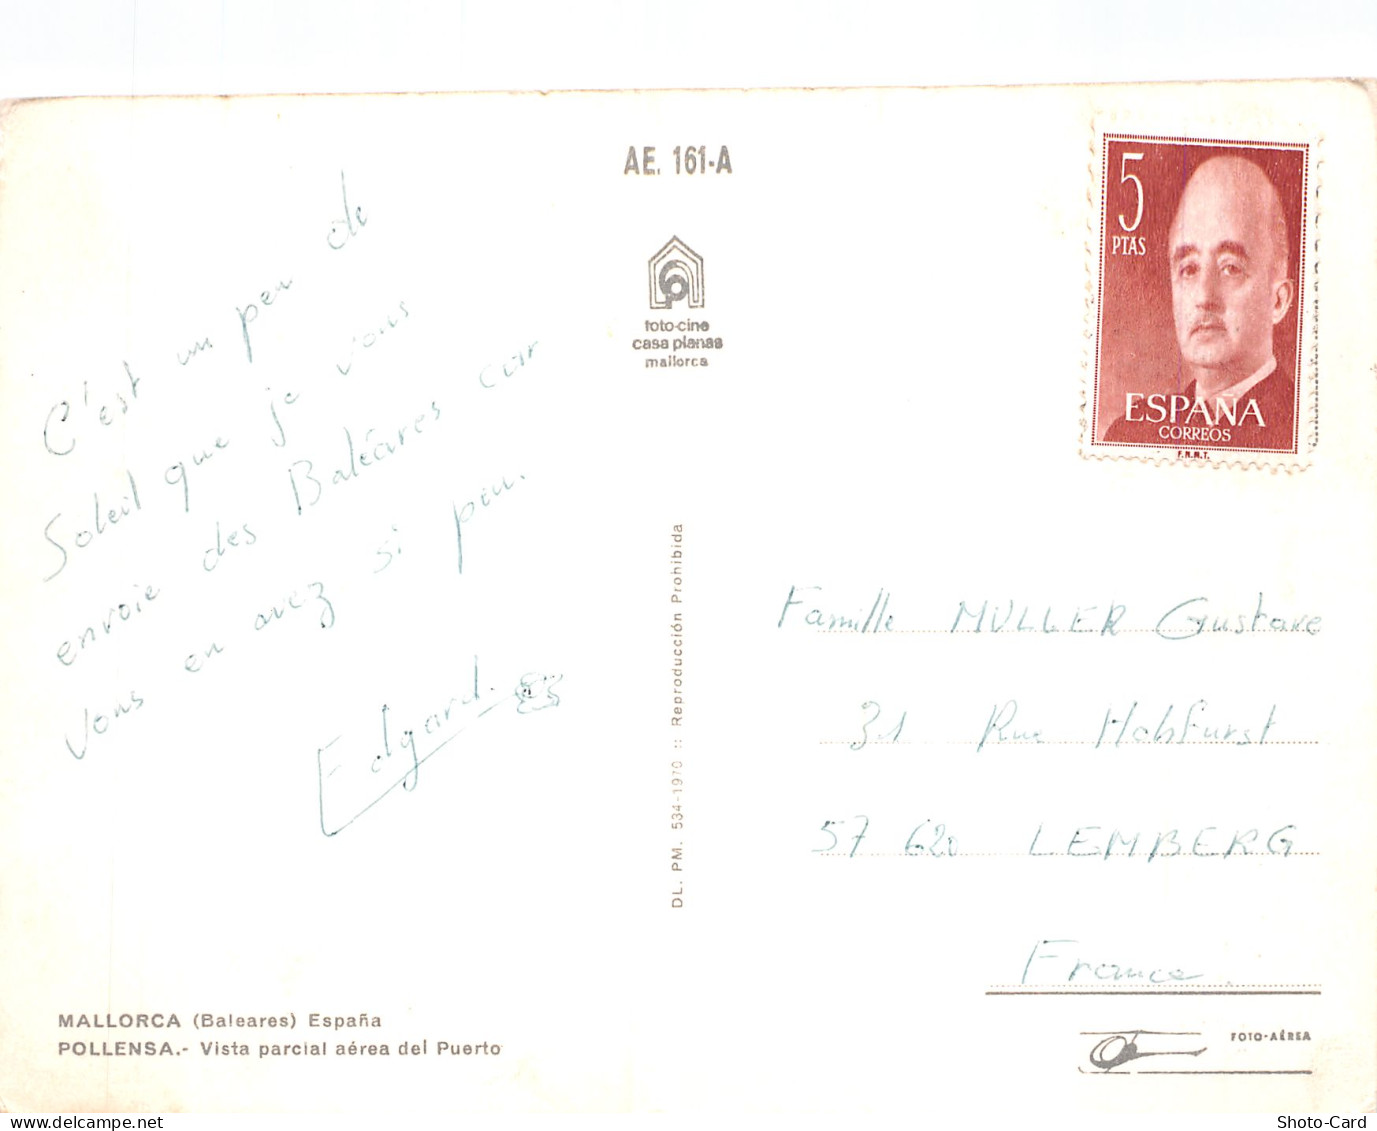 AE. 161-A
foto-cine
casa planas
mallorca
5
PTAS
ESPAÑA
CORREOS
F.N.M.T.
C'est un peu de
Soleil que je vous
envoie des Baléares car
vous en avez si peu.
Edgard
DL. PM. 534-1970 :: Reproducción Prohibida
Famille MULLER Gustave
31 Rue Hohfurst
57 620 LEMBERG
France.
MALLORCA (Baleares) España
POLLENSA.- Vista parcial aérea del Puerto
FOTO-AÉREA
Shoto-Card